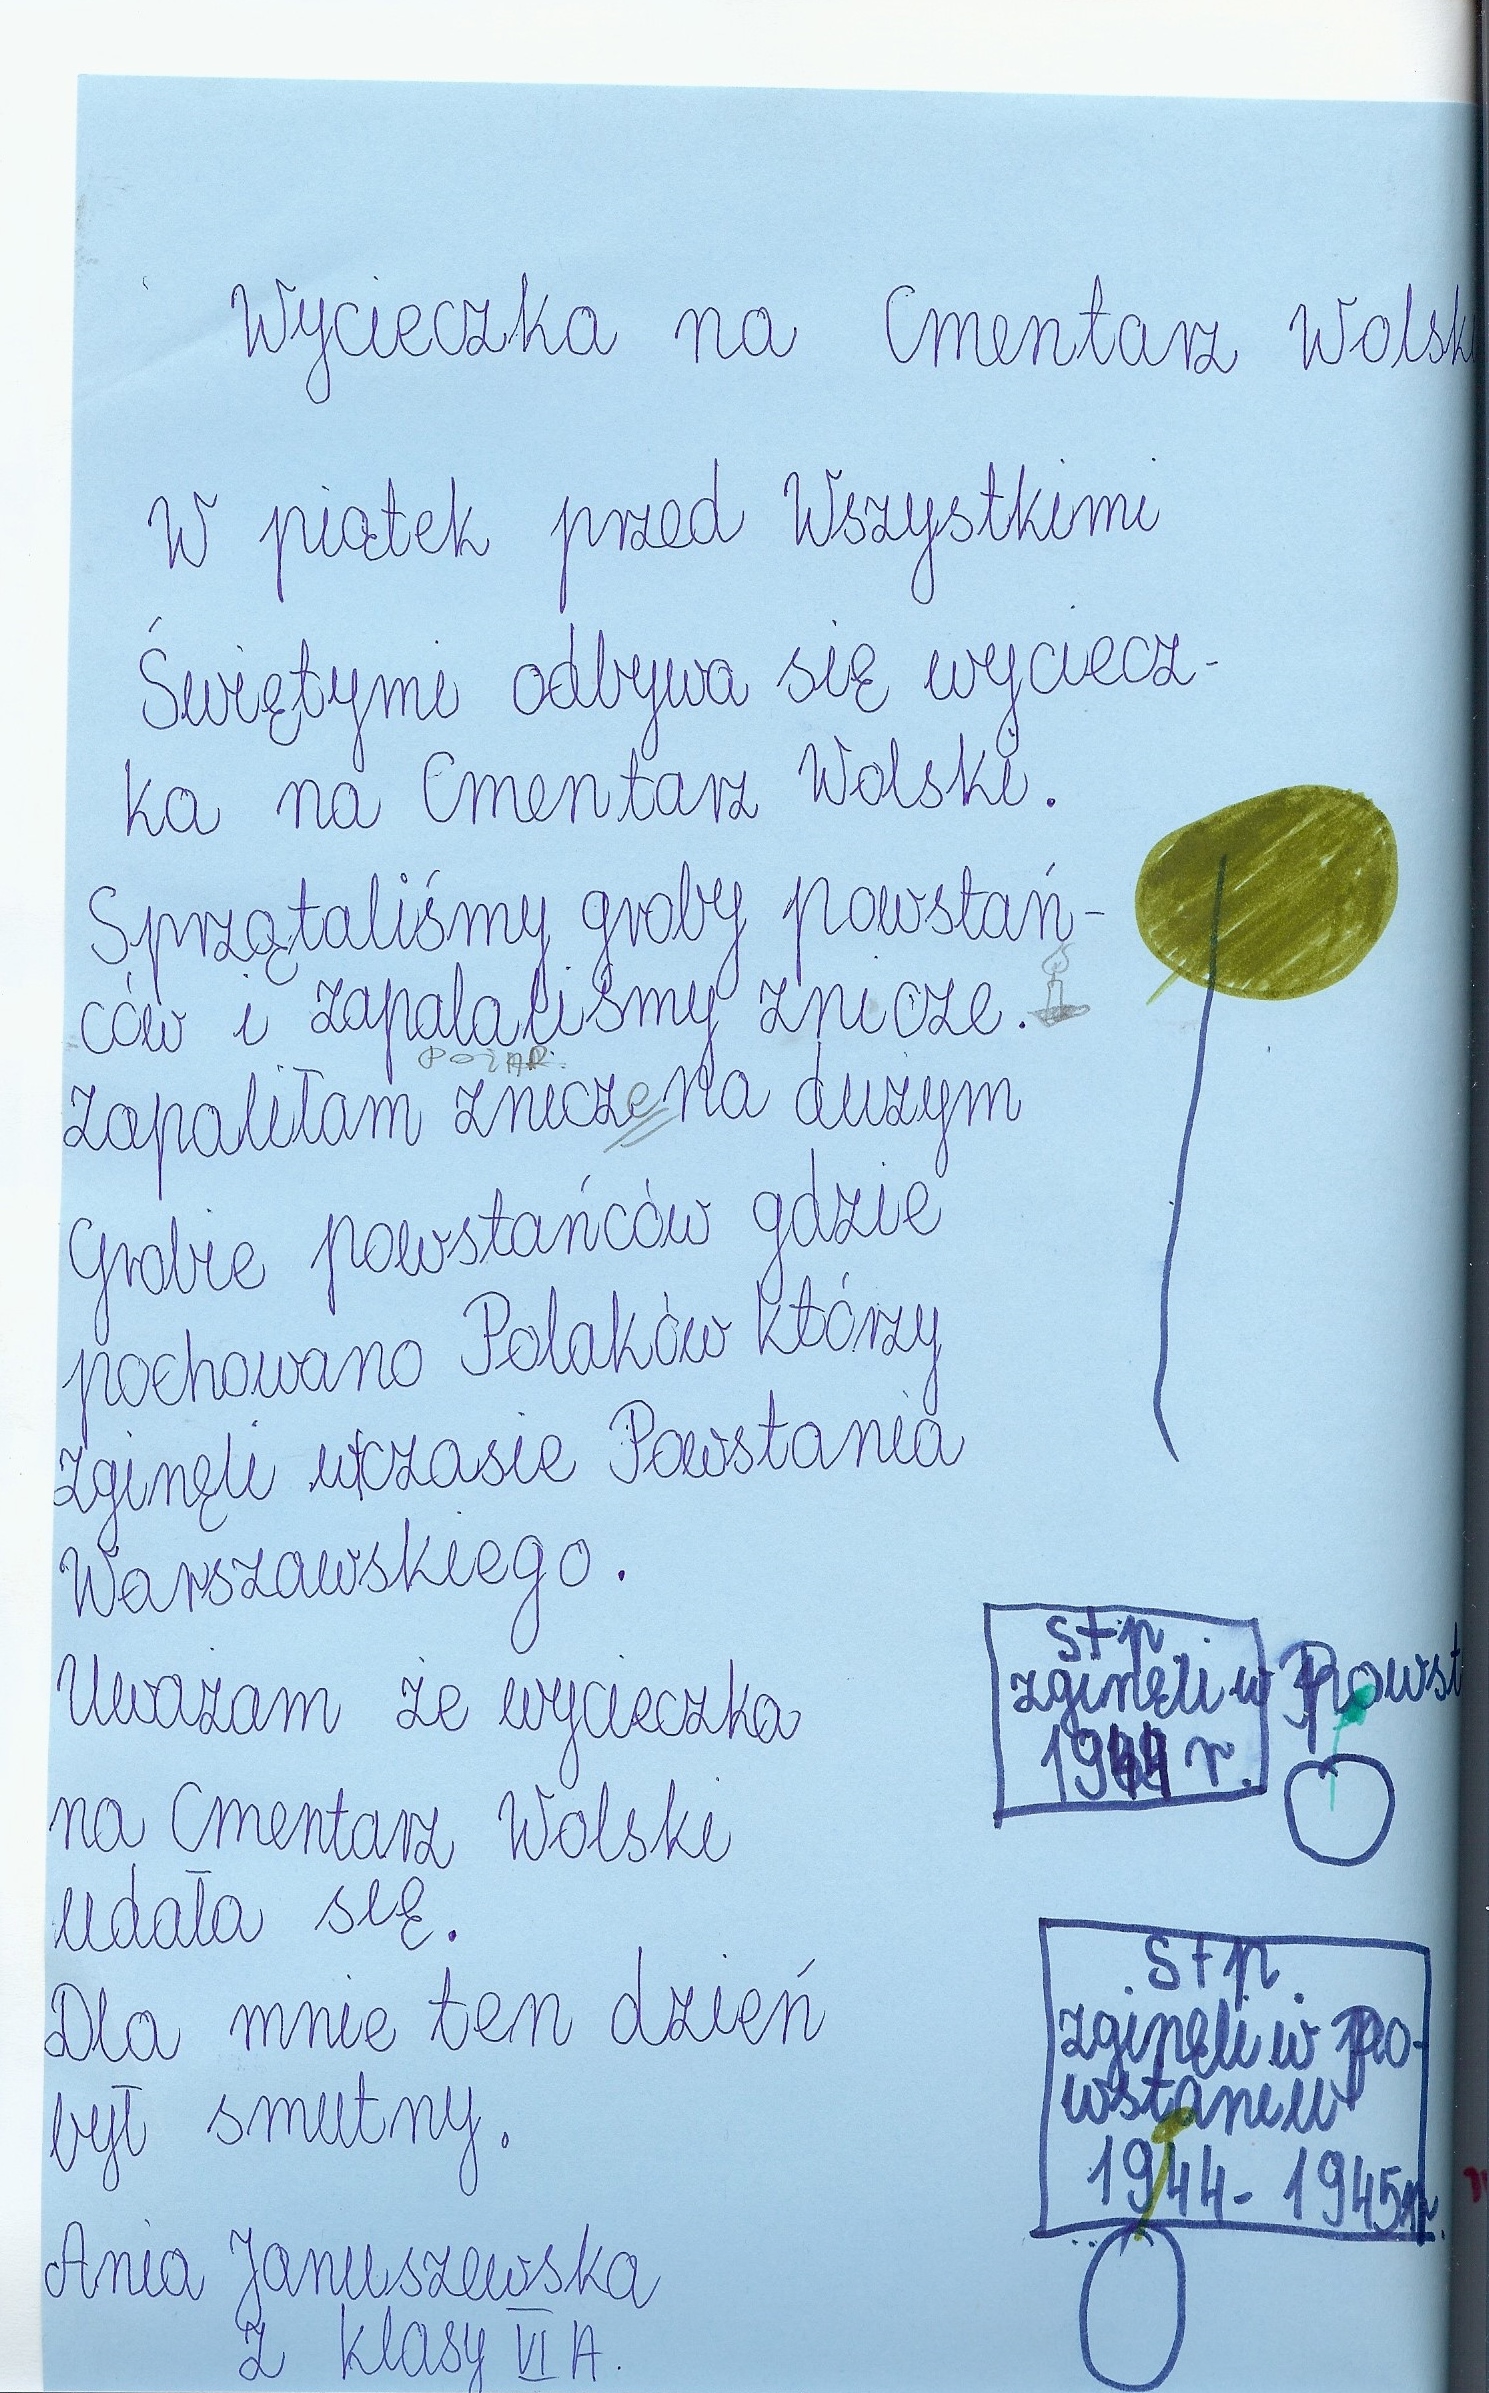 Wycieczka na Cmentarz Wolski
W piątek przed Wszystkimi
Świętymi odbywa się wyciecz-
ka na Cmentarz Wolski.
Sprzątaliśmy groby powstań-
ców i zapalaliśmy znicze.
POŻAR.
Zapaliłam znicze na dużym
Grobie powstańców gdzie
pochowano Polaków którzy
zginęli w czasie Powstania
Warszawskiego.
Uważam że wycieczka
na Cmentarz Wolski
udała się.
Dla mnie ten dzień
był smutny.
Ania Januszewska
z klasy VI A.
S+p
zginęli w Powst
1944 r.
S+p.
zginęli w Po-
wstaniu
1944-1945r.